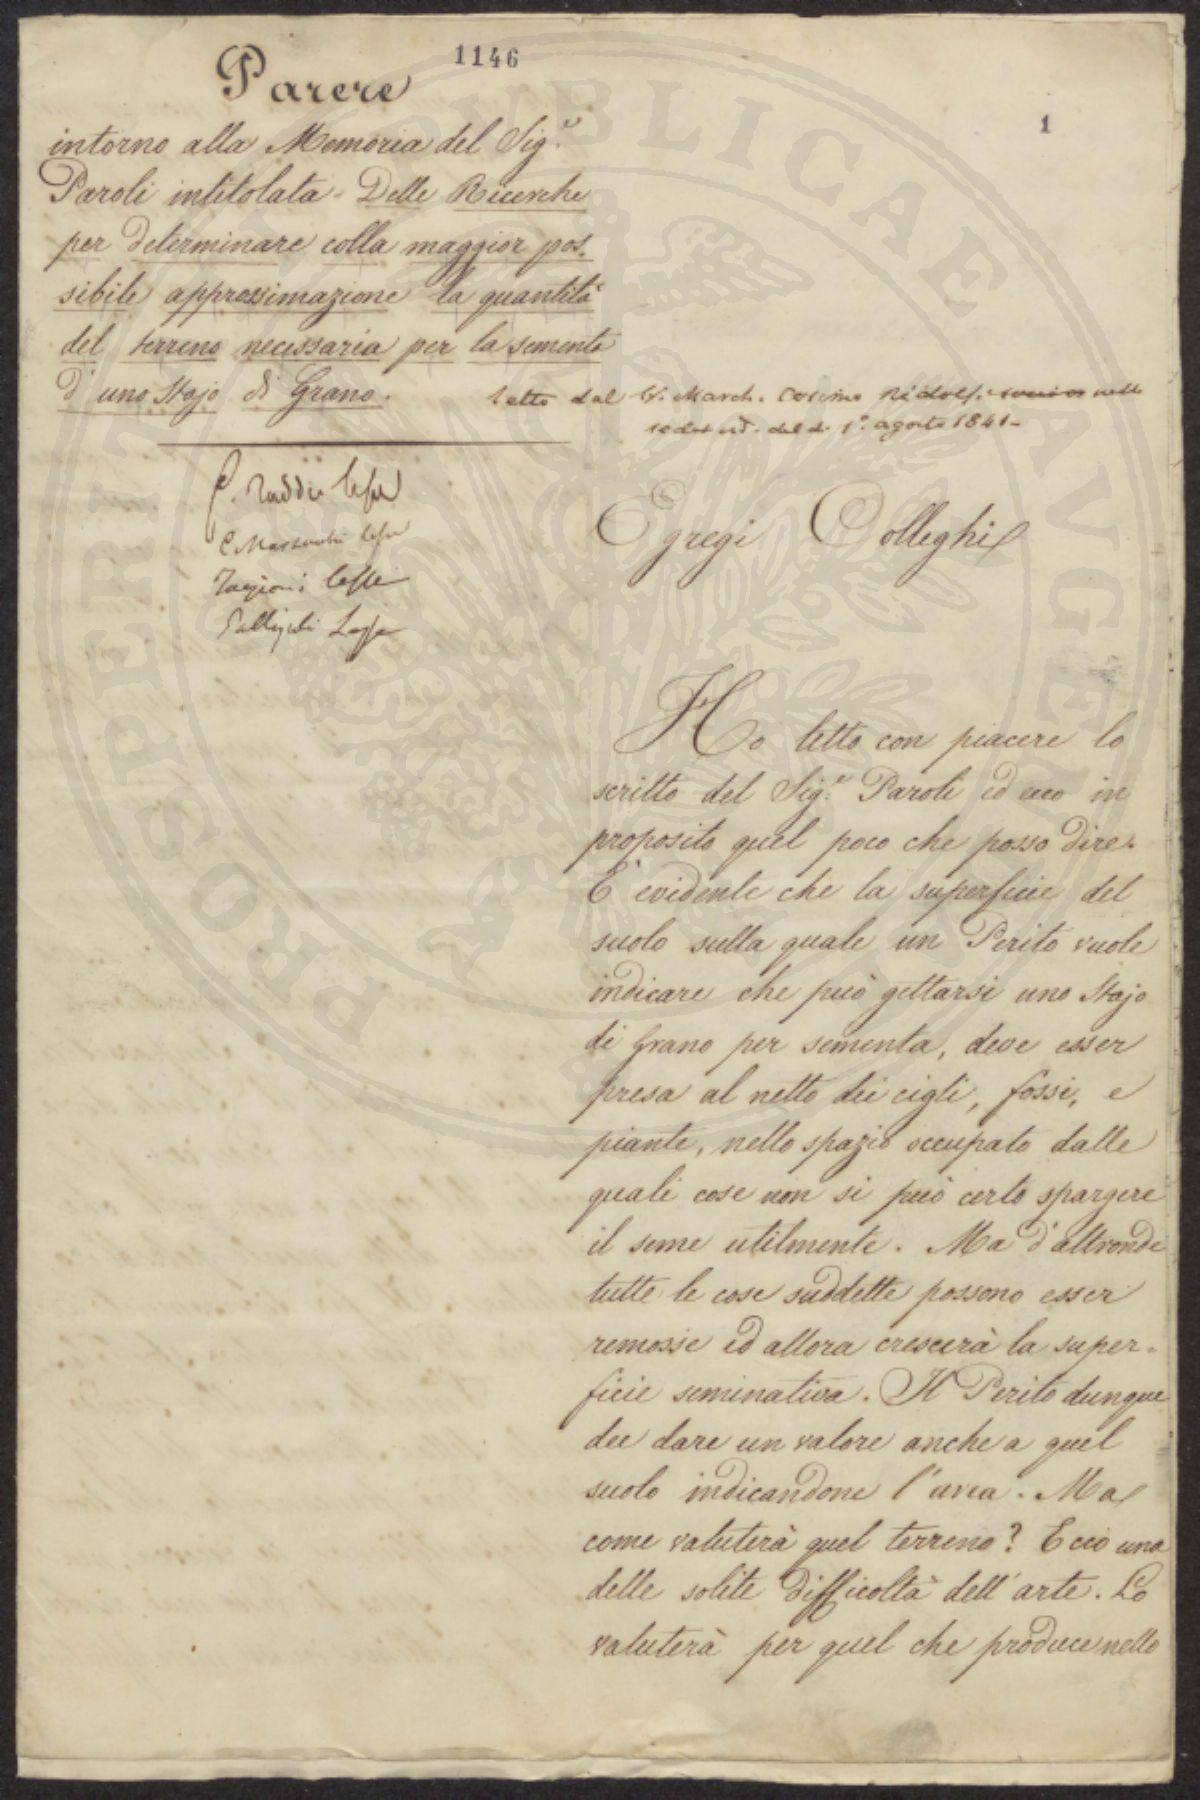 1146
1
Parere
intorno alla Memoria del Sig.e
Paroli intitolata - Delle Ricerche
per determinare colla maggior pos-
sibile approssimazione la quantità
del terreno necessaria per la sementa
d'uno Stajo di Grano.
Letto dal March. Cosimo Ridolfi nella
del dì 1.º agosto 1841 -
Taddei
Targioni
Egregi Colleghi
Ho letto con piacere lo
scritto del Sig.e Paroli ed ecco in
proposito quel poco che posso dire.
È evidente che la superficie del
suolo sulla quale un Perito vuole
indicare che può gettarsi uno Stajo
di Grano per sementa, deve esser
presa al netto dei cigli, fossi, e
piante, nello spazio occupato dalle
quali cose non si può certo spargere
il seme utilmente. Ma d'altronde
tutte le cose suddette possono esser
remosse ed allora crescerà la super-
ficie seminativa. Il Perito dunque
dee dare un valore anche a quel
suolo indicandone l'area. Ma
come valuterà quel terreno? Ecco una
delle solite difficoltà dell'arte. Lo
valuterà per quel che produce nello
PROSPERITATI PUBLICAE AUGENDAE